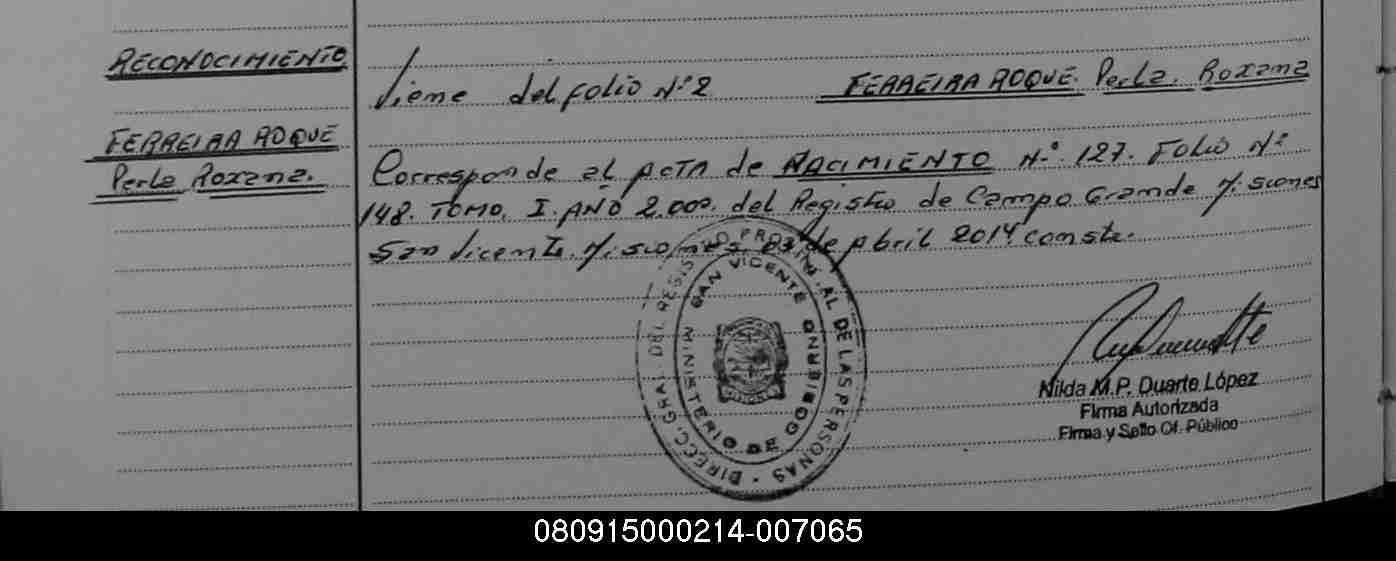 RECONOCIMIENTO
FERREIRA ROQUE
Perla Roxana.
Viene del folio N°2 FERREIRA ROQUE. Perla. Roxana
Corresponde al ACTA de NACIMIENTO N° 127. Folio N°
148. TOMO. I. AÑO 2.000. del Registro de Campo Grande Misiones
San Vicente. Misiones de Abril 2014 conste.
DIRECC. GRAL. DEL REGISTRO PROVINCIAL DE LAS PERSONAS
MINISTERIO DE GOBIERNO
SAN VICENTE
Nilda M.P. Duarte López
Firma Autorizada
Firma y Sello Of. Público
080915000214-007065